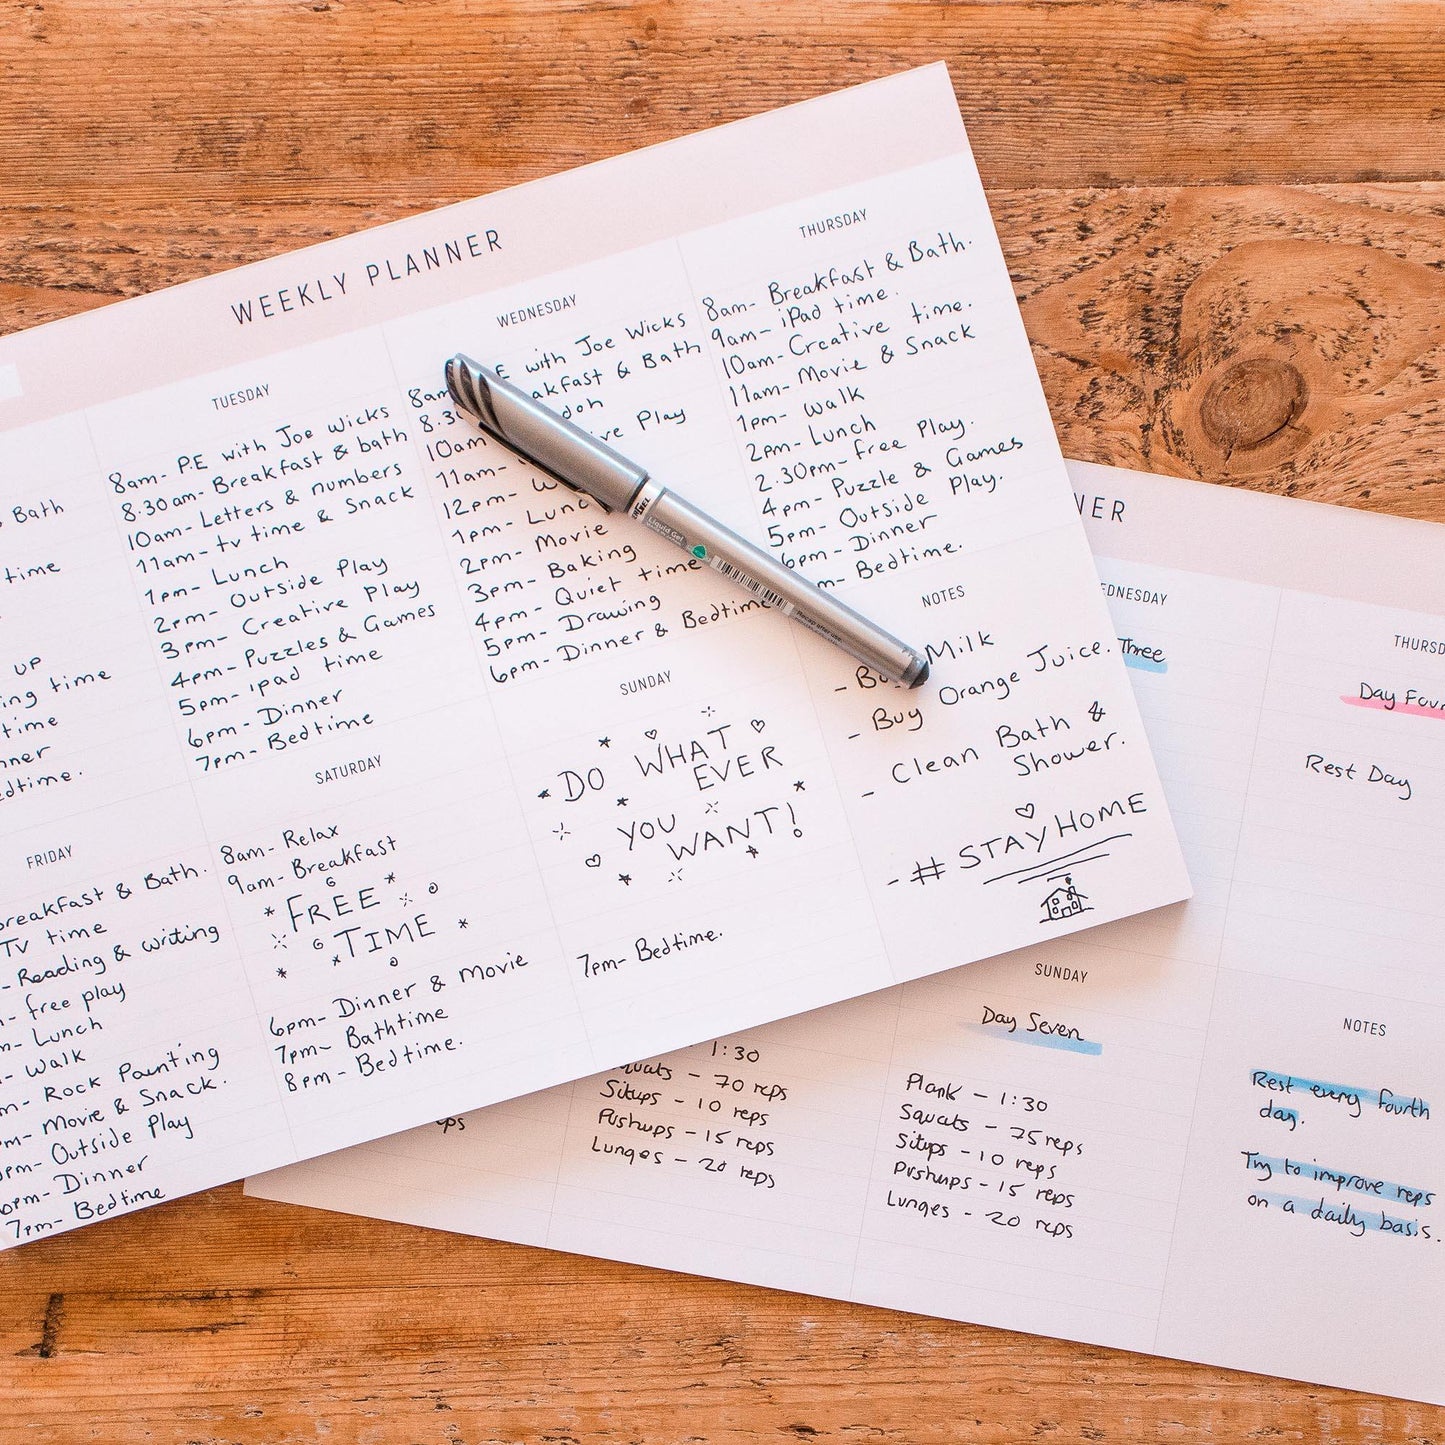 WEEKLY PLANNER
Bath
time
UP
ing time
time
nner
edtime.
TUESDAY
8am- P.E with Joe Wicks
8.30am- Breakfast & bath
10am- Letters & numbers
11am- tv time & Snack
1pm- Lunch
2pm- Outside Play
3pm- Creative Play
4pm- Puzzles & Games
5pm- ipad time
6pm- Dinner
7pm- Bedtime
WEDNESDAY
8am E with Joe Wicks
8.3 akfast & Bath
10am doh
11am- ve Play
12pm- W
1pm- Lunc
2pm- Movie
3pm- Baking
4pm- Quiet time
5pm- Drawing
6pm- Dinner & Bedtime
THURSDAY
8am- Breakfast & Bath.
9am- iPad time.
10am- Creative time.
11am- Movie & Snack
1pm- Walk
2pm- Lunch
2.30pm- free Play.
4pm- Puzzle & Games
5pm- Outside Play.
6pm- Dinner
m- Bedtime.
FRIDAY
reakfast & Bath.
TV time
- Reading & writing
- free play
- Lunch
- Walk
m- Rock Painting
m- Movie & Snack.
pm- Outside Play
6pm- Dinner
7pm- Bedtime
SATURDAY
8am- Relax
9am- Breakfast
FREE
TIME
6pm- Dinner & Movie
7pm- Bathtime
8pm- Bedtime.
SUNDAY
DO WHAT
EVER
YOU
WANT!
7pm- Bedtime.
NOTES
- Bu Milk
- Buy Orange Juice.
- Clean Bath &
Shower.
- # STAYHOME
Liquid Gel
Recap after use.
NER
EDNESDAY
Three
THURSD
Day Four
Rest Day
ps
1:30
quats - 70 reps
Situps - 10 reps
Pushups - 15 reps
Lunges - 20 reps
SUNDAY
Day Seven
Plank - 1:30
Squats - 75 reps
Situps - 10 reps
Pushups - 15 reps
Lunges - 20 reps
NOTES
Rest every fourth
day.
Try to improve reps
on a daily basis.